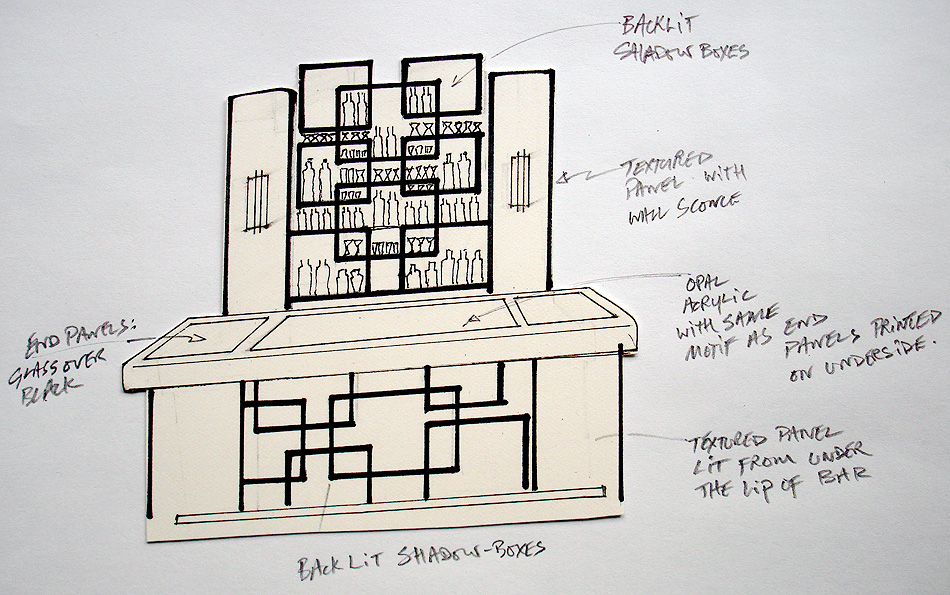 BACKLIT
SHADOW BOXES
TEXTURED
PANEL WITH
WALL SCONCE
OPAL
ACRYLIC
WITH SAME
MOTIF AS END
PANELS PRINTED
ON UNDERSIDE.
END PANELS:
GLASS OVER
BLACK
TEXTURED PANEL
LIT FROM UNDER
THE LIP OF BAR
BACKLIT SHADOW-BOXES